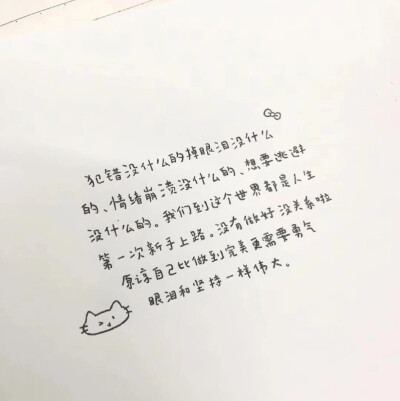 犯错没什么的掉眼泪没什么
的、情绪崩溃没什么的、想要逃避
没什么的。我们到这个世界都是人生
第一次新手上路。没有做好没关系啦
原谅自己比做到完美更需要勇气
眼泪和坚持一样伟大。